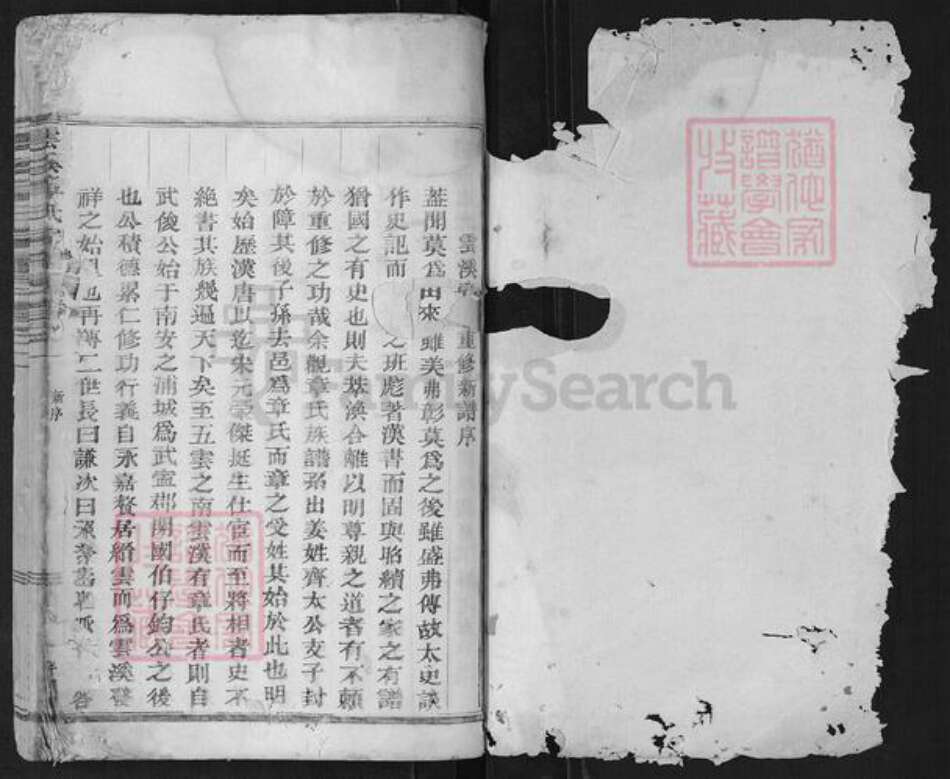 雲溪章 重修新譜序
蓋聞莫爲由來雖美弗彰莫爲之後雖盛弗傳故太史談
作史記而 之班彪著漢書而固與昭續之家之有譜
猶國之有史也則夫萃渙合離以明尊親之道者有不賴
於重修之功哉余觀章氏族譜系出姜姓齊太公支子封
於障其後子孫去邑爲章氏而章之受姓其始於此也明
矣始歷漢唐以迄宋元豪傑挺生仕宦而至將相者史不
絶書其族幾遍天下矣至五雲之南雲溪有章氏者則自
武俊公始于南安之浦城爲武寧郡開國伯仔鈞公之後
也公積德累仁修功行義自永嘉 居縉雲而爲雲溪發
祥之始 也再傳二世長曰謙次曰
新序
FamilySearch